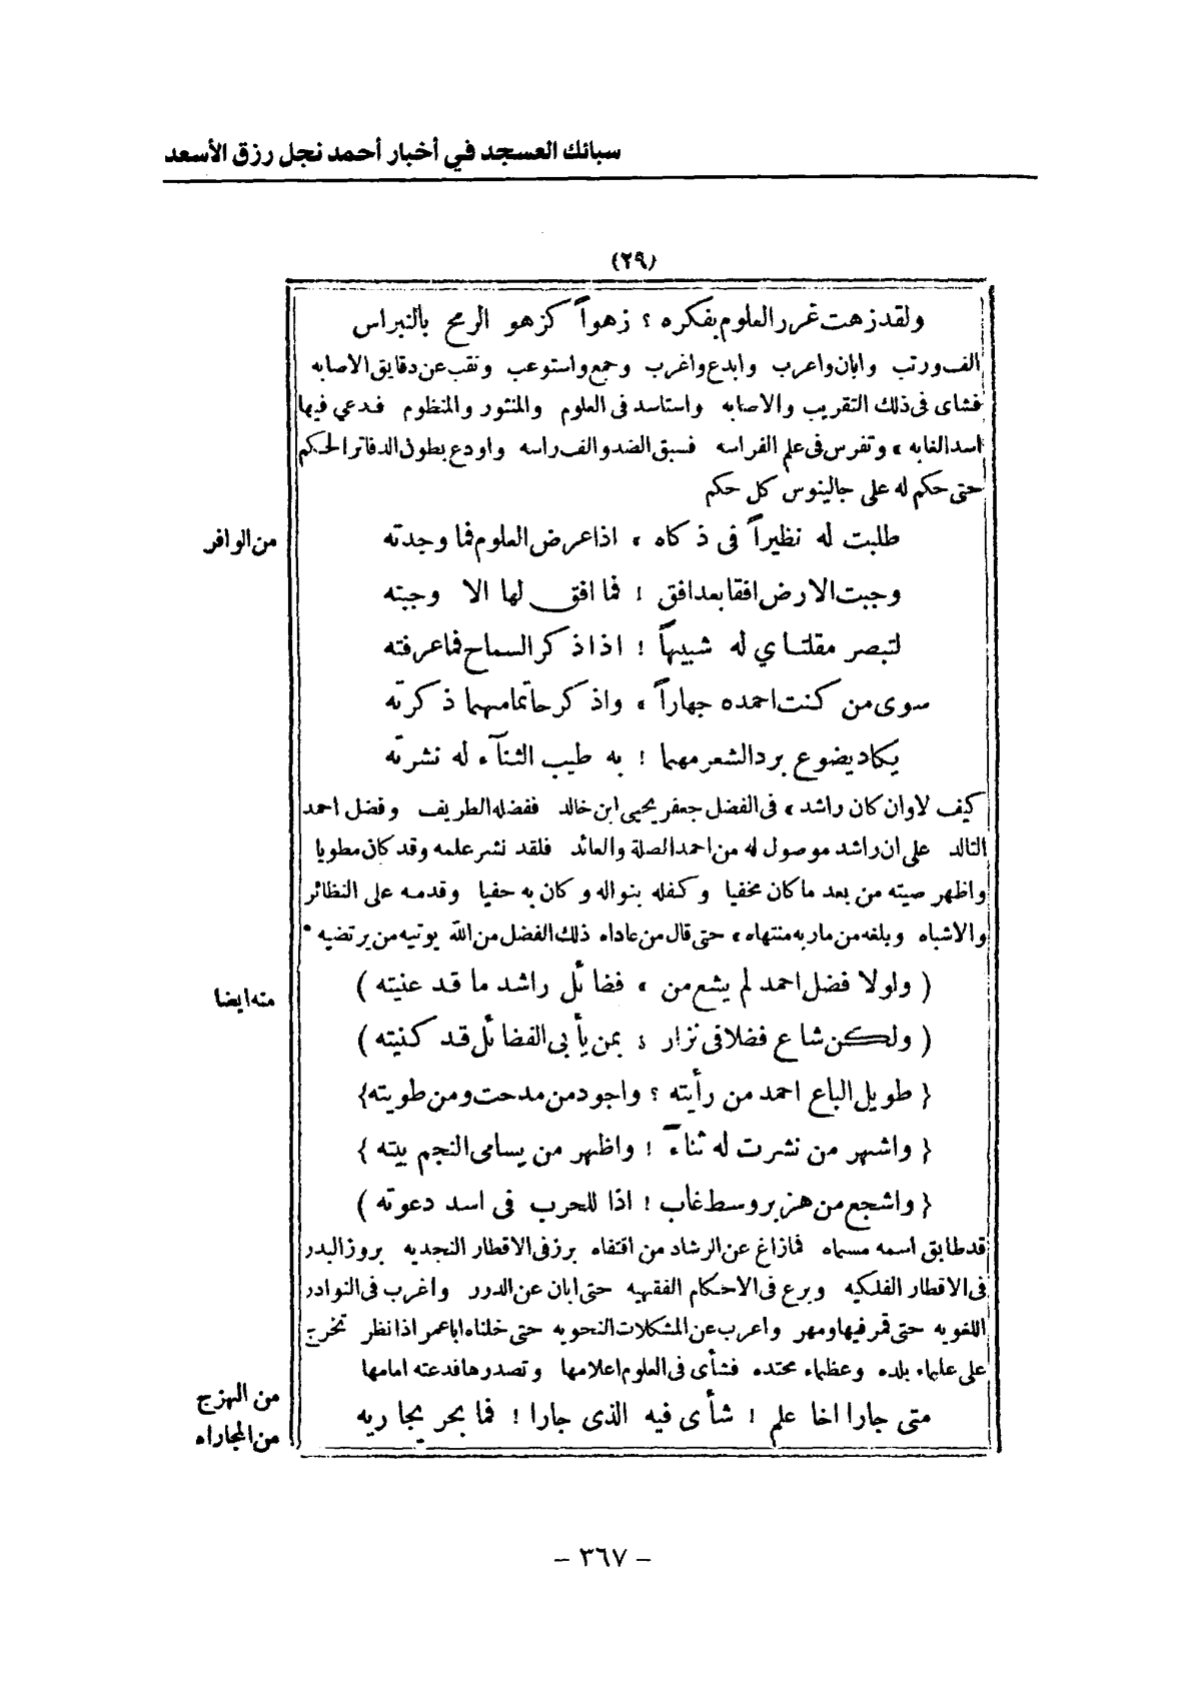 سبائك العسجد في أخبار أحمد نجل رزق الأسعد
(٢٩)
ولقد زهت غرر العلوم بفكره ؟ زهواً كزهو الرمح بالنبراس
الف ورتب وابان واعرب وابدع واغرب وجمع واستوعب ونقب عن دقايق الاصابه
فشاى فى ذلك التقريب والاصابه واستاسد فى العلوم والمنثور والمنظوم فدعي فيها
اسد الغابه ، وتفرس فى علم الفراسه فسبق الضد والف راسه واودع بطون الدفاتر الحكم
حتى حكم له على جالينوس كل حكم
طلبت له نظيراً فى ذكاه ، اذا عرض العلوم فما وجدته
من الوافر
وجبت الارض افقا بعد افق ! فما افق لها الا وجبته
لتبصر مقلتاي له شبيهاً ! اذا ذكر السماح فما عرفته
سوى من كنت احمده جهاراً ، واذكر حاتما مهما ذكرته
يكاد يضوع برد الشعر مهما ! به طيب الثنآء له نشرته
كيف لا وان كان راشد ، فى الفضل جعفر يحيى ابن خالد ففضله الطريف وفضل احمد
التالد على ان راشد موصول له من احمد الصلة والعائد فلقد نشر علمه وقد كان مطويا
واظهر صيته من بعد ما كان مخفيا وكفله بنواله وكان به حفيا وقدمه على النظائر
والاشباه وبلغه من ماربه منتهاه ، حتى قال من عاداه ذلك الفضل من الله يوتيه من يرتضيه *
( ولولا فضل احمد لم يشع من ، فضائل راشد ما قد عنيته )
منه ايضا
( ولكن شاع فضلا فى نزار ; بمن يأبى الفضائل قد كنيته )
{ طويل الباع احمد من رأيته ؟ واجود من مدحت ومن طويته}
{ واشهر من نشرت له ثناءً ! واظهر من يسامى النجم بيته }
{ واشجع من هزبر وسط غاب ! اذا للحرب فى اسد دعوته )
قد طابق اسمه مسماه فما زاغ عن الرشاد من اقتفاه برز فى الاقطار النجديه بروز البدر
فى الاقطار الفلكيه وبرع فى الاحكام الفقهيه حتى ابان عن الدرر واغرب فى النوادر
اللغويه حتى قمر فيها ومهر واعرب عن المشكلات النحويه حتى خلناه ابا عمر اذا نظر تخرج
على علماء بلده وعظماء محتده فشأى فى العلوم اعلامها وتصدرها فدعته امامها
من الهزج
متى جارا اخا علم ! شأى فيه الذى جارا ! فما بحر يجاريه
من المجاراه
- ٣٦٧ -